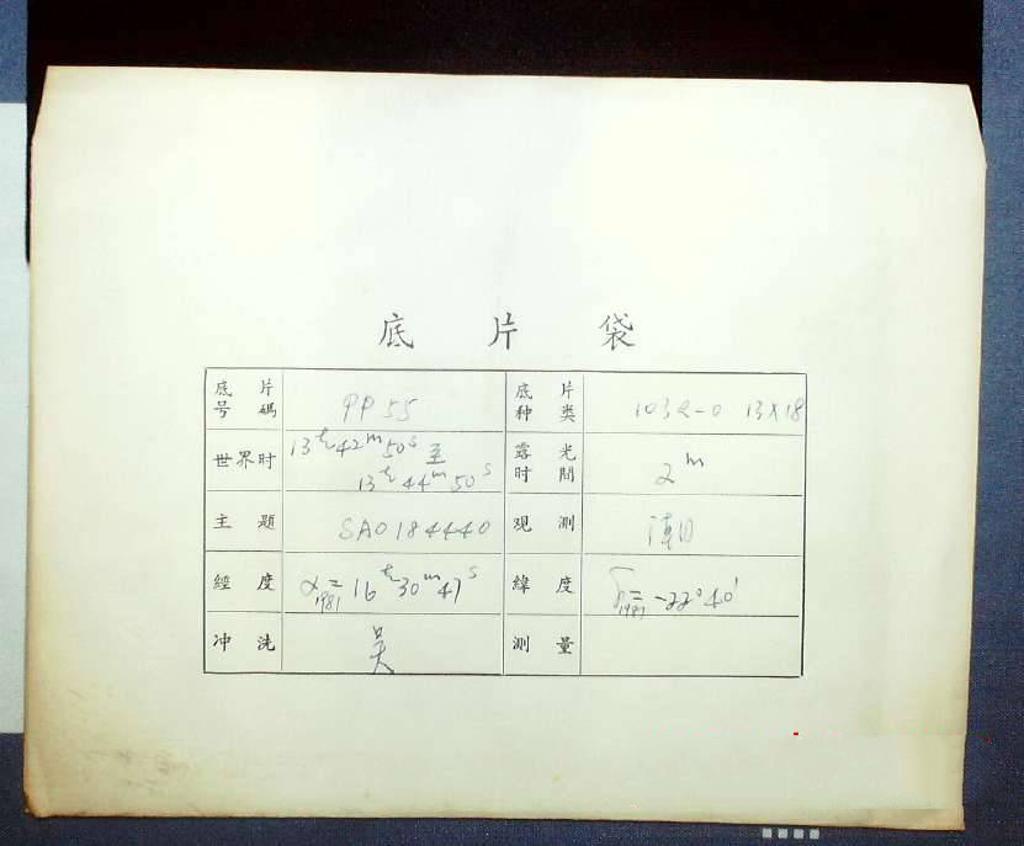 底片袋
底片号碼 PP 55 底片种类 103a-O 13×18
世界时 13h42m50s至 露光时間 2m
13h44m50s
主題 SAO 184440 观測
經度 α1981= 16h30m47s 緯度 δ1981= -22°40'
冲洗 吴 測量